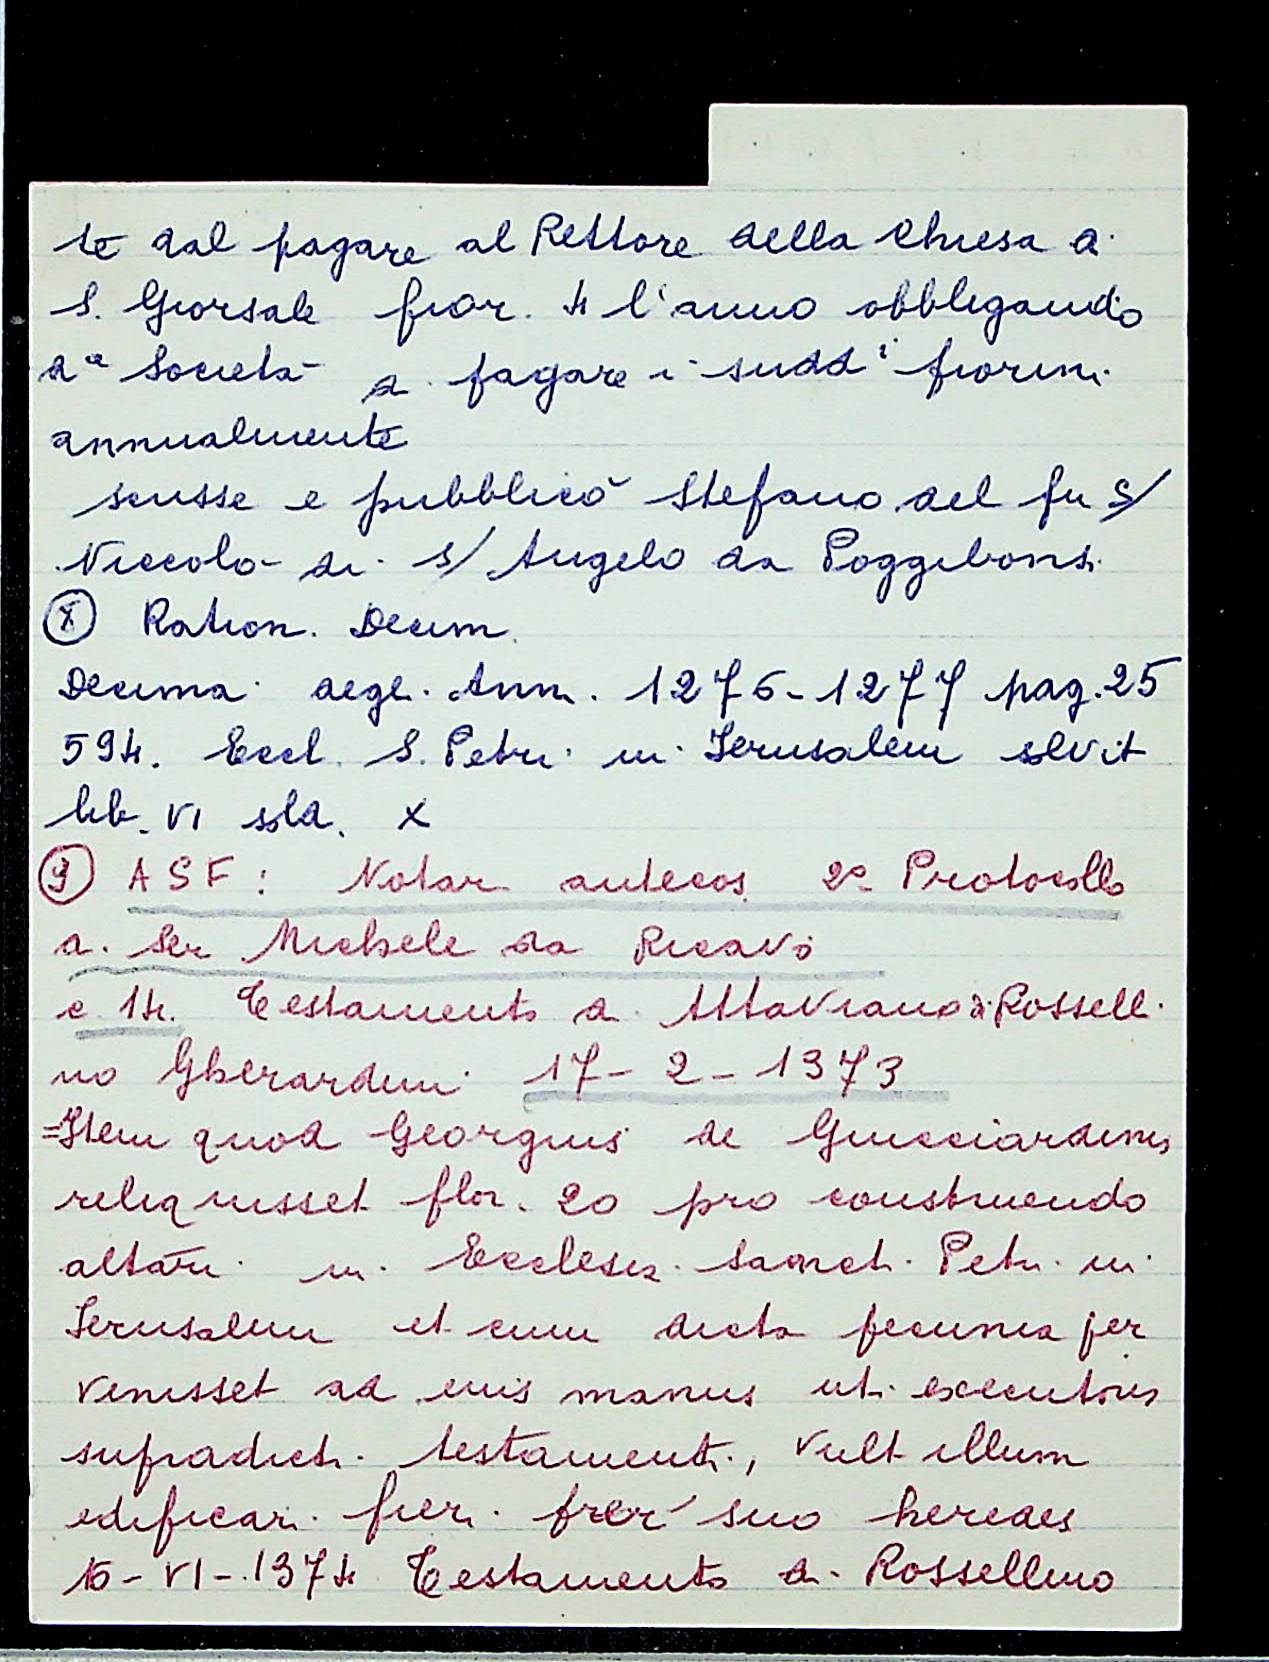 te dal pagare al Rettore della Chiesa di
S. Giorsale fior. 4 l'anno obbligando
da Società a pagare i sudd i fiorini
annualmente
scrisse e pubblicò Stefano del fu S/
Niccolò di S/ Angelo da Poggibonsi
⑧ Ration. Decim.
Decima degl. Ann. 1276-1277 pag. 25
594. Eccl. S. Petri in Jerusalem solvit
lib. VI sold. X
⑨ ASF: Notar. antecos. 2º Protocollo
di Ser Michele da Ricavo
c 14. Testamento di Attaviano di Rosselli
no Gherardini 17-2-1373
=Item quod Georgius de Guicciardinis
reliquisset flor. 20 pro construendo
altari in Ecclesia Sancti Petri in
Jerusalem et cum dicta pecunia per
venisset ad euis manus uti executoris
supradicti testamenti, vult illum
edificari fieri suo heredes
16-VI-1374 Testamento di Rossellino